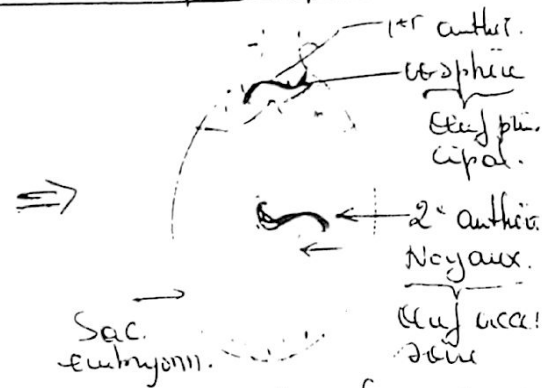 1er anthé.
oosphère
Œuf prin.
cipal.
2e anthéro.
Noyaux.
Œuf acces
soire
Sac.
embryonn.